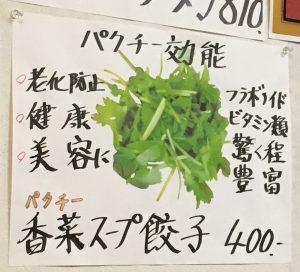 810.
パクチー効能
老化防止
健康
美容に
フラボノイド
ビタミン類
驚く程
豊富
パクチー
香菜スープ餃子 400.-